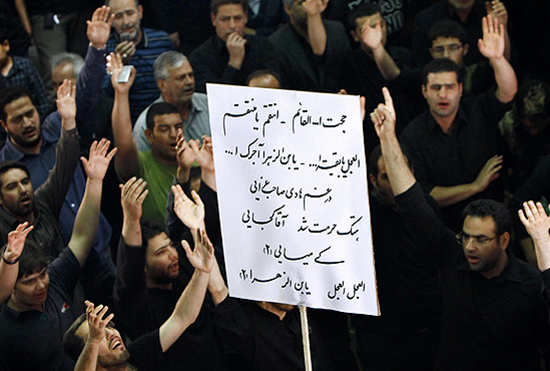 حجت ا... القائم - انتقم یا منتقم
العجل یا بقیة ا... - یابن الزهرا آجرک ا...
در غم هادی صاحب عزایی
هتک حرمت شد آقا کجایی
کے میایی (۲)
العجل العجل یابن الزهرا (۲)